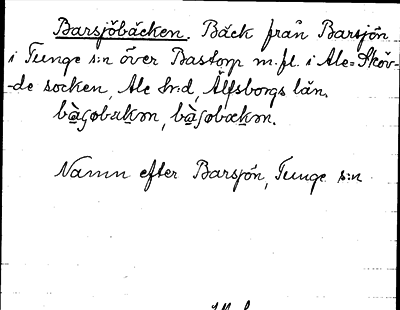 Barsjöbäcken. Bäck från Barsjön
i Tunge s:n över Bastorp m.fl. i Ale-Sköv-
-de socken, Ale hrd, Älfsborgs län.
Namn efter Barsjön, Tunge s:n